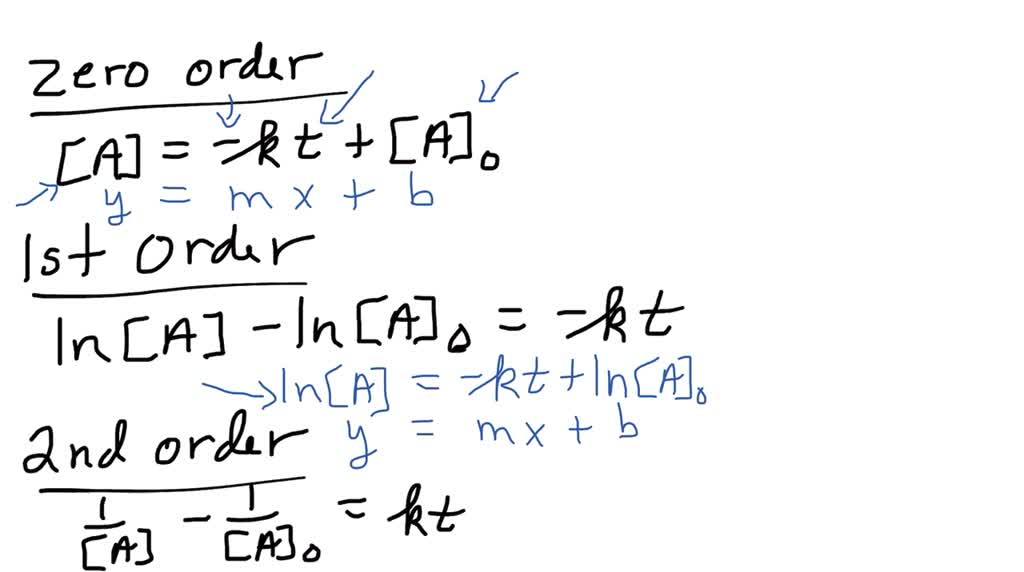 zero order
[A] = -kt + [A]₀
y = mx + b
1st Order
ln[A] - ln[A]₀ = -kt
ln[A] = -kt + ln[A]₀
y = mx + b
2nd order
1/[A] - 1/[A]₀ = kt